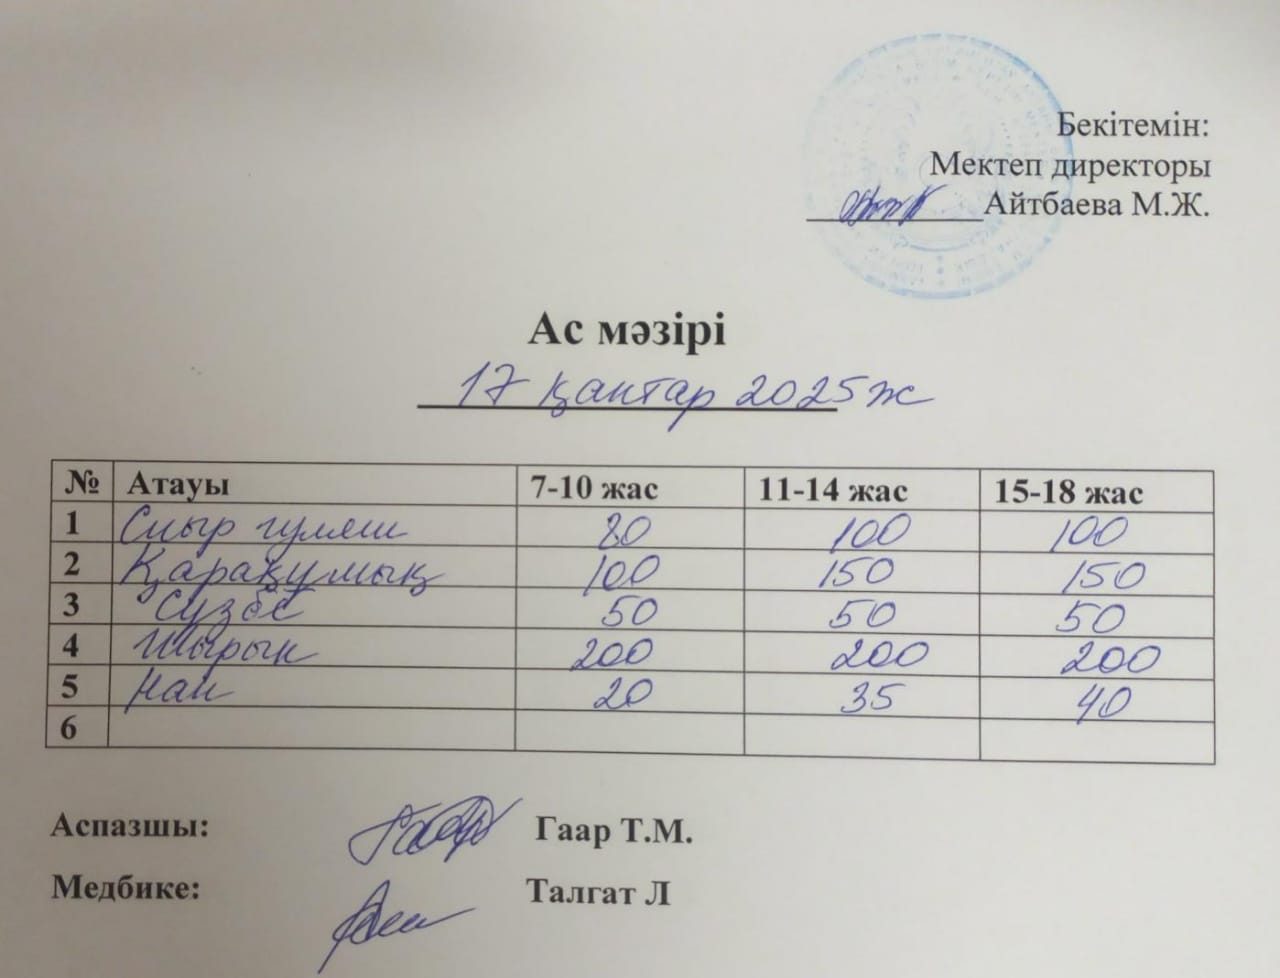 Бекітемін:
Мектеп директоры
Айтбаева М.Ж.
Ас мәзірі
17 қантар 2025 ж
№ Атауы 7-10 жас 11-14 жас 15-18 жас
1 Сиыр гуляш 80 100 100
2 Қарақұмық 100 150 150
3 Сүзбе 50 50 50
4 Шырын 200 200 200
5 Нан 20 35 40
6
Аспазшы: Гаар Т.М.
Медбике: Талгат Л